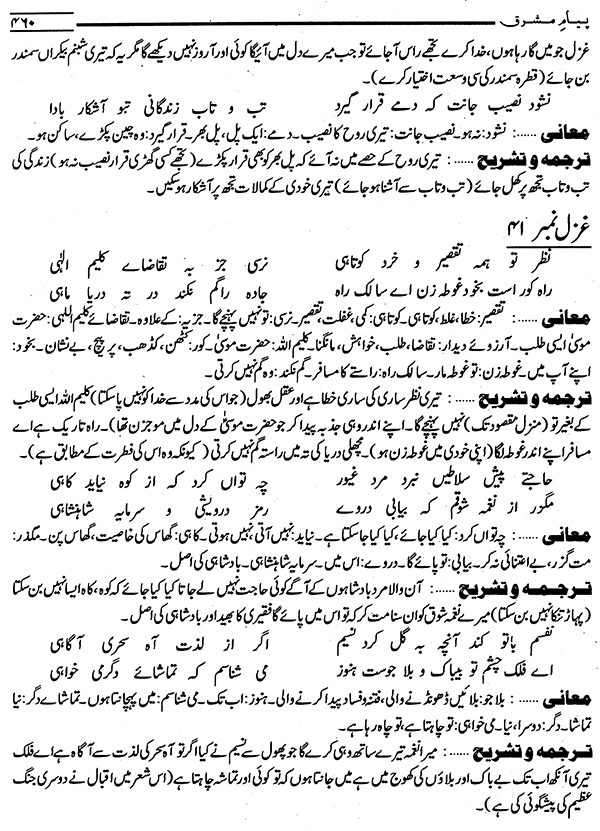 پیامِ مشرق
۴۶۰
غزل جو میں گا رہا ہوں، خدا کرے تجھے راس آ جائے تو جب میرے دل میں آئیگا کوئی اور آروز نہیں دیکھے گا مگر یہ کہ تیری شبنم بیکراں سمندر
بن جائے (قطرہ سمندر کی سی وسعت اختیار کرے)۔
نشود نصیب جانت کہ دمے قرار گیرد تب و تاب زندگانی تبو آشکار بادا
معانی ......: نشود: نہ ہو۔ نصیب جانت: تیری روح کا نصیب۔ دمے: ایک پل، پل بھر۔ قرار گیرد: وہ چین پکڑے، ساکن ہو۔
ترجمہ و تشریح ......: تیری روح کے حصے میں نہ آئے کہ پل بھر کو بھی قرار پکڑے (تجھے کسی گھڑی قرار نصیب نہ ہو) زندگی کی
تب و تاب تجھ پر کھل جائے (تب و تاب سے آشنا ہو جائے) تیری خودی کے کمالات تجھ پر آشکار ہو سکیں۔
غزل نمبر ۴۱
نظر تو ہمہ تقصیر و خرد کوتاہی نرسی جز بہ تقاضاے کلیم الٰہی
راہ کور است بخود غوطہ زن اے سالک راہ جادہ را گم نکند در تہ دریا ماہی
معانی ......: تقصیر: خطا، غلط، کوتاہی۔ کوتاہی: کمی، غفلت، تقصیر۔ نرسی: تو نہیں پہنچے گا۔ جز بہ: کے علاوہ۔ تقاضائے کلیم اللہی: حضرت
موسیٰ ایسی طلب۔ آرزوے دیدار: تقاضا، طلب، خواہش، مانگنا۔ کلیم اللہ: حضرت موسیٰ۔ کور: کٹھن، کڈھب، پر پیچ، بے نشان۔ بخود:
اپنے آپ میں۔ غوطہ زن: تو غوطہ مار۔ سالک راہ: راستے کا مسافر۔ گم نکند: وہ گم نہیں کرتی۔
ترجمہ و تشریح ......: تیری نظر ساری کی ساری خطا ہے اور عقل بھول (جو اس کی مدد سے خدا کو نہیں پا سکتا) کلیم اللہ ایسی طلب
کے بغیر تو (منزل مقصود تک) نہیں پہنچے گا۔ اپنے اندر وہی جذبہ پیدا کر جو حضرت موسیٰ کے دل میں موجزن تھا)۔ راہ تاریک ہے اے
مسافر اپنے اندر غوطہ لگا (اپنی خودی میں غوطہ زن ہو)۔ مچھلی دریا کی تہ میں راستہ گم نہیں کرتی (کیونکہ وہ اس کی فطرت کے مطابق ہے)۔
حاجتے پیش سلاطیں نبرد مرد غیور چہ تواں کرد کہ از کوہ نیاید کاہی
مگزر از نغمہ شوقم کہ بیابی دروے رمز درویشی و سرمایہ شاہنشاہی
معانی ......: چہ تواں کرد: کیا کیا جائے، کیا کیا جا سکتا ہے۔ نیاید: نہیں آتی نہیں ہوتی۔ کاہی: گھاس کی خاصیت، گھاس پن۔ مگذر:
مت گزر، بے اعتنائی نہ کر۔ بیابی: تو پائے گا۔ دروے: اس میں۔ سرمایہ شاہنشاہی۔ بادشاہی کی اصل۔
ترجمہ و تشریح ......: آن والا مرد بادشاہوں کے آگے کوئی حاجت نہیں لے جاتا کیا کیا جائے کہ کوہ، کاہ ایسا نہیں بن سکتا
(پہاڑ تنکا نہیں بن سکتا) میرے نغمہ شوق کو ان سنا مت کر کہ تو اس میں پائے گا فقیری کا بھید اور بادشاہی کی اصل۔
نفسم باتو کند آنچہ بہ گل کرد نسیم اگر از لذت آہ سحری آگاہی
اے فلک چشم تو بیباک و بلا جوست ہنوز می شناسم کہ تماشائے دگر می خواہی
معانی ......: بلا جو: بلائیں ڈھونڈنے والی، فتنہ و فساد پیدا کرنے والی۔ ہنوز: اب تک۔ می شناسم: میں پہچانتا ہوں۔ تماشاے دگر: نیا
تماشا۔ دگر: دوسرا، نیا۔ می خواہی: تو چاہتا ہے، تو چاہ رہا ہے۔
ترجمہ و تشریح ......: میرا نغمہ تیرے ساتھ وہی کرے گا جو پھول سے نسیم نے کیا اگر تو آہ سحر کی لذت سے آگاہ ہے اے فلک
تیری آنکھ اب تک بے باک اور بلاؤں کی کھوج میں ہے میں جانتا ہوں کہ تو کوئی اور تماشہ چاہتا ہے (اس شعر میں اقبال نے دوسری جنگ
عظیم کی پیشگوئی کی ہے)۔